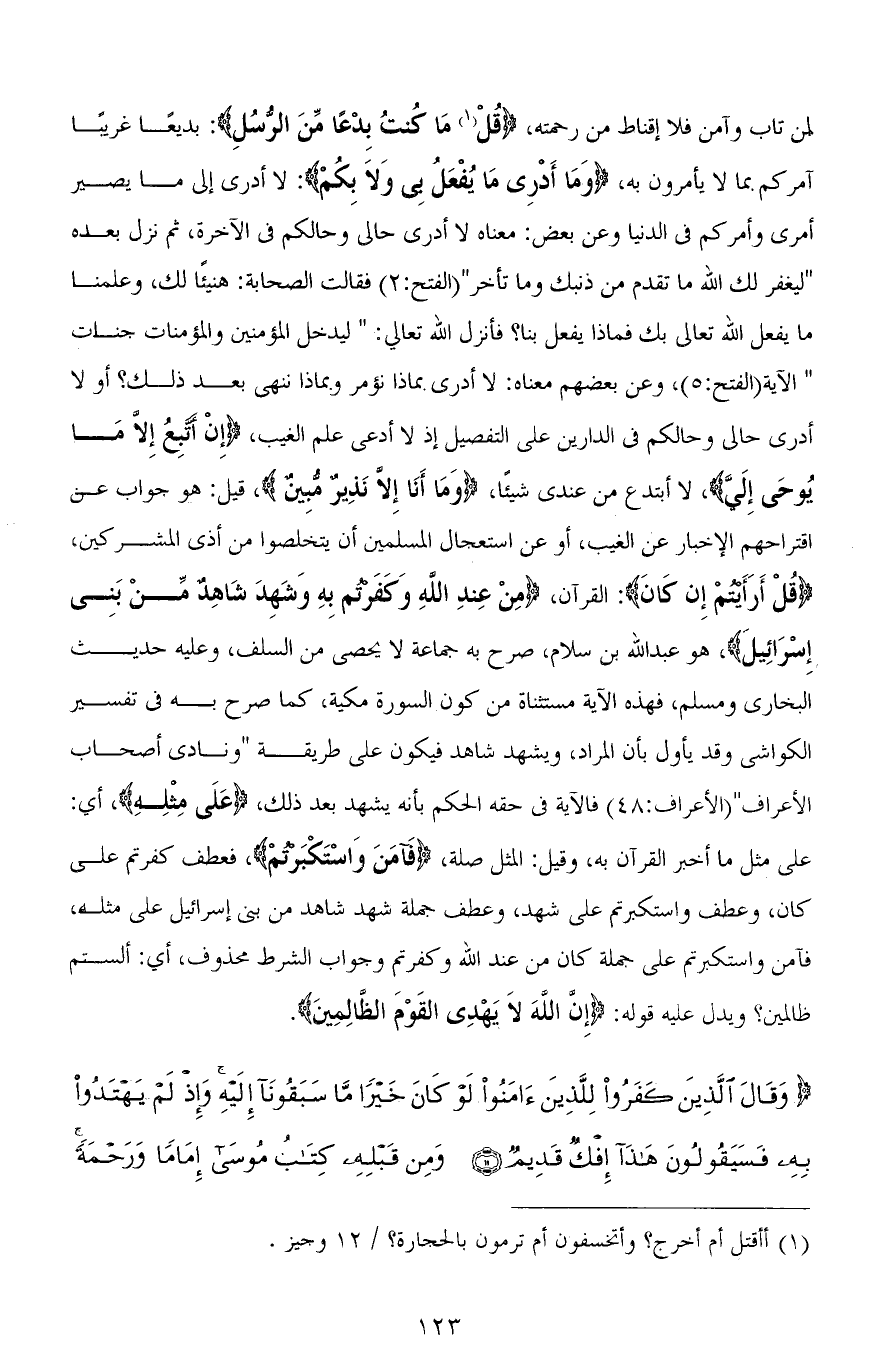 لمن تاب وآمن فلا إقناط من رحمته، ﴿قُلْ(١) مَا كُنتُ بِدْعًا مِّنَ الرُّسُلِ﴾: بديعًا غريبًا
آمركم بما لا يأمرون به، ﴿وَمَا أَدْرِى مَا يُفْعَلُ بِى وَلاَ بِكُمْ﴾: لا أدرى إلى ما يصير
أمرى وأمركم فى الدنيا وعن بعض: معناه لا أدرى حالى وحالكم فى الآخرة، ثم نزل بعده
"ليغفر لك الله ما تقدم من ذنبك وما تأخر"(الفتح:٢) فقالت الصحابة: هنيئًا لك، وعلمنا
ما يفعل الله تعالى بك فماذا يفعل بنا؟ فأنزل الله تعالي: " ليدخل المؤمنين والمؤمنات جنات
" الآية(الفتح:٥)، وعن بعضهم معناه: لا أدرى بماذا نؤمر وبماذا ننهى بعد ذلك؟ أو لا
أدرى حالى وحالكم فى الدارين على التفصيل إذ لا أدعى علم الغيب، ﴿إِنْ أَتَّبِعُ إِلاَّ مَا
يُوحَى إِلَيَّ﴾، لا أبتدع من عندى شيئًا، ﴿وَمَا أَنَا إِلاَّ نَذِيرٌ مُّبِينٌ ﴾، قيل: هو جواب عن
اقتراحهم الإخبار عن الغيب، أو عن استعجال المسلمين أن يتخلصوا من أذى المشركين،
﴿قُلْ أَرَأَيْتُمْ إِن كَانَ﴾: القرآن، ﴿مِنْ عِندِ اللَّهِ وَكَفَرْتُم بِهِ وَشَهِدَ شَاهِدٌ مِّنْ بَنِى
إِسْرَائِيلَ﴾، هو عبدالله بن سلام، صرح به جماعة لا يحصى من السلف، وعليه حديث
البخارى ومسلم، فهذه الآية مستثناة من كون السورة مكية، كما صرح به فى تفسير
الكواشى وقد يأول بأن المراد، ويشهد شاهد فيكون على طريقة "ونادى أصحاب
الأعراف"(الأعراف:٤٨) فالآية فى حقه الحكم بأنه يشهد بعد ذلك، ﴿عَلَى مِثْلِهِ﴾، أي:
على مثل ما أخبر القرآن به، وقيل: المثل صلة، ﴿فَآمَنَ وَاسْتَكْبَرْتُمْ﴾، فعطف كفرتم على
كان، وعطف واستكبرتم على شهد، وعطف جملة شهد شاهد من بنى إسرائيل على مثله،
فآمن واستكبرتم على جملة كان من عند الله وكفرتم وجواب الشرط محذوف، أي: ألستم
ظالمين؟ ويدل عليه قوله: ﴿إِنَّ اللَّهَ لاَ يَهْدِى القَوْمَ الظَّالِمِينَ﴾.
﴿ وَقَالَ ٱلَّذِينَ كَفَرُواْ لِلَّذِينَ ءَامَنُواْ لَوْ كَانَ خَيْرًا مَّا سَبَقُونَآ إِلَيْهِۚ وَإِذْ لَمْ يَهْتَدُواْ
بِهِۦ فَسَيَقُولُونَ هَٰذَآ إِفْكٌ قَدِيمٌ ۝١١ وَمِن قَبْلِهِۦ كِتَٰبُ مُوسَىٰٓ إِمَامًا وَرَحْمَةًۚ
(١) أأقتل أم أخرج؟ وأتخسفون أم ترمون بالحجارة؟ / ١٢ وجيز .
١٢٣